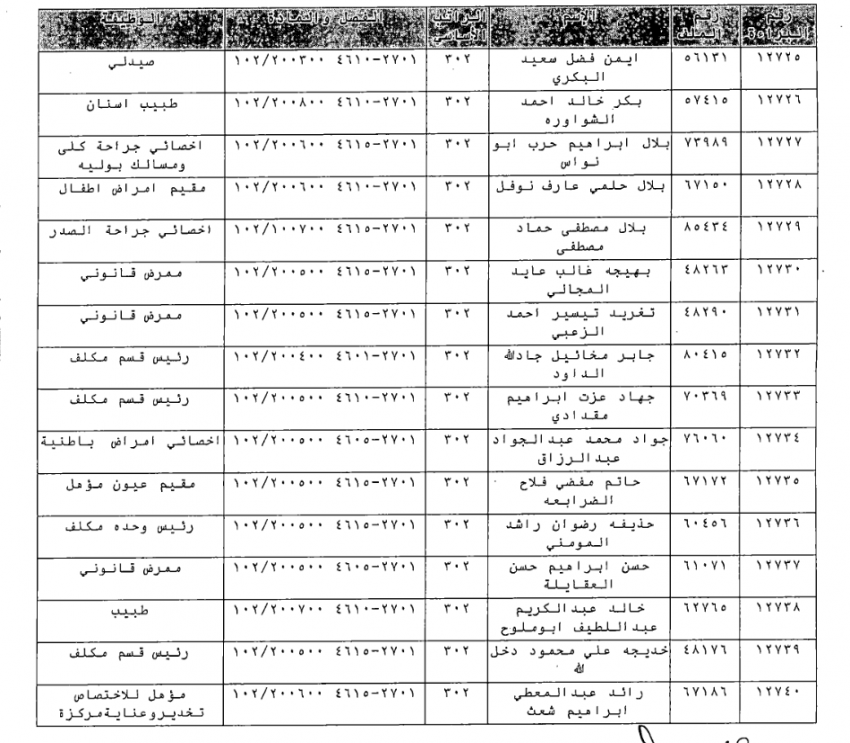 رقم البراءة | رقم الملف | الاسم | الراتب الأساسي | الفصل والمادة | الوظيفة
١٢٧٢٥ | ٥٦١٣١ | ايمن فضل سعيد البكري | ٣٠٢ | ٢٧٠١-٤٦١٠ ١٠٢/٢٠٠٣٠٠ | صيدلي
١٢٧٢٦ | ٥٧٤١٥ | بكر خالد احمد الشواوره | ٣٠٢ | ٢٧٠١-٤٦١٠ ١٠٢/٢٠٠٨٠٠ | طبيب اسنان
١٢٧٢٧ | ٧٣٩٨٩ | بلال ابراهيم حرب ابو نواس | ٣٠٢ | ٢٧٠١-٤٦١٥ ١٠٢/٢٠٠٦٠٠ | اخصائي جراحة كلى ومسالك بوليه
١٢٧٢٨ | ٦٧١٥٠ | بلال حلمي عارف نوفل | ٣٠٢ | ٢٧٠١-٤٦١٠ ١٠٢/٢٠٠٦٠٠ | مقيم امراض اطفال
١٢٧٢٩ | ٨٥٤٣٤ | بلال مصطفى حماد مصطفى | ٣٠٢ | ٢٧٠١-٤٦١٥ ١٠٢/١٠٠٧٠٠ | اخصائي جراحة الصدر
١٢٧٣٠ | ٤٨٢٦٣ | بهيجه غالب عايد المجالي | ٣٠٢ | ٢٧٠١-٤٦١٥ ١٠٢/٢٠٠٥٠٠ | ممرض قانوني
١٢٧٣١ | ٤٨٢٩٠ | تغريد تيسير احمد الزعبي | ٣٠٢ | ٢٧٠١-٤٦١٥ ١٠٢/٢٠٠٥٠٠ | ممرض قانوني
١٢٧٣٢ | ٨٠٤١٥ | جابر مخائيل جادالله الداود | ٣٠٢ | ٢٧٠١-٤٦٠١ ١٠٢/٢٠٠٤٠٠ | رئيس قسم مكلف
١٢٧٣٣ | ٧٠٣٦٩ | جهاد عزت ابراهيم مقدادي | ٣٠٢ | ٢٧٠١-٤٦١٠ ١٠٢/٢٠٠٥٠٠ | رئيس قسم مكلف
١٢٧٣٤ | ٧٦٠٦٠ | جواد محمد عبدالجواد عبدالرزاق | ٣٠٢ | ٢٧٠١-٤٦٠٥ ١٠٢/٢٠٠٥٠٠ | اخصائي امراض باطنية
١٢٧٣٥ | ٦٧١٧٢ | حاتم مفضي فلاح الضرابعه | ٣٠٢ | ٢٧٠١-٤٦١٥ ١٠٢/٢٠٠٥٠٠ | مقيم عيون مؤهل
١٢٧٣٦ | ٦٠٤٥٦ | حذيفه رضوان راشد المومني | ٣٠٢ | ٢٧٠١-٤٦١٥ ١٠٢/٢٠٠٥٠٠ | رئيس وحده مكلف
١٢٧٣٧ | ٦١٠٧١ | حسن ابراهيم حسن العقايلة | ٣٠٢ | ٢٧٠١-٤٦٠٥ ١٠٢/٢٠٠٥٠٠ | ممرض قانوني
١٢٧٣٨ | ٦٢٧٦٥ | خالد عبدالكريم عبداللطيف ابوملوح | ٣٠٢ | ٢٧٠١-٤٦١٠ ١٠٢/٢٠٠٧٠٠ | طبيب
١٢٧٣٩ | ٤٨١٧٦ | خديجه علي محمود دخل الله | ٣٠٢ | ٢٧٠١-٤٦١٥ ١٠٢/٢٠٠٥٠٠ | رئيس قسم مكلف
١٢٧٤٠ | ٦٧١٨٦ | رائد عبدالمعطي ابراهيم شعث | ٣٠٢ | ٢٧٠١-٤٦١٥ ١٠٢/٢٠٠٦٠٠ | مؤهل للاختصاص تخدير وعناية مركزة